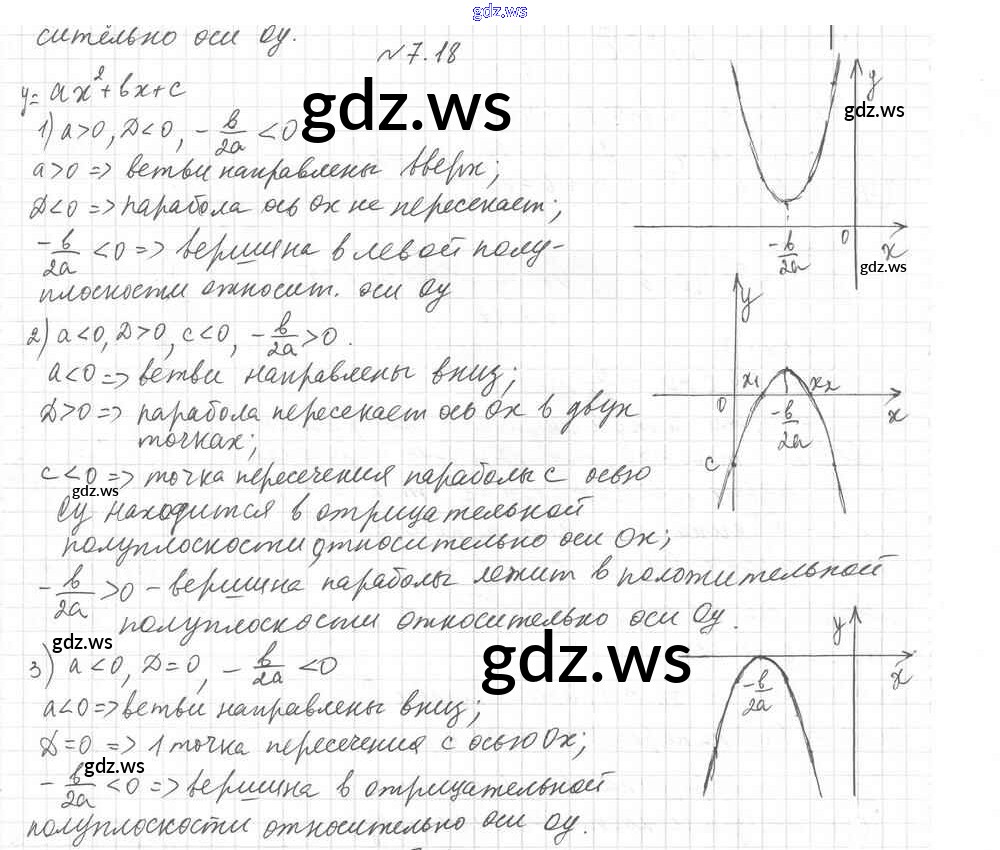 gdz.ws
сительно оси Oy.
N 7.18
y = ax² + bx + c
gdz.ws
1) a>0, D<0, -b/2a <0
a>0 => ветви направлены вверх;
D<0 => парабола ось Ox не пересекает;
-b/2a <0 => вершина в левой полу-
плоскости относит. оси Oy
y
gdz.ws
-b/2a
0
x
gdz.ws
2) a<0, D>0, c<0, -b/2a >0.
a<0 => ветви направлены вниз;
D>0 => парабола пересекает ось Ox в двух
точках;
c<0 => точка пересечения параболы с осью
gdz.ws
Oy находится в отрицательной
полуплоскости относительно оси Ox;
-b/2a >0 - вершина параболы лежит в положительной
полуплоскости относительно оси Oy.
y
x₁
x₂
0
-b/2a
x
c
gdz.ws
gdz.ws
3) a<0, D=0, -b/2a <0
a<0 => ветви направлены вниз;
D=0 => 1 точка пересечения с осью Ox;
gdz.ws
-b/2a <0 => вершина в отрицательной
полуплоскости относительно оси Oy.
y
x
-b/2a